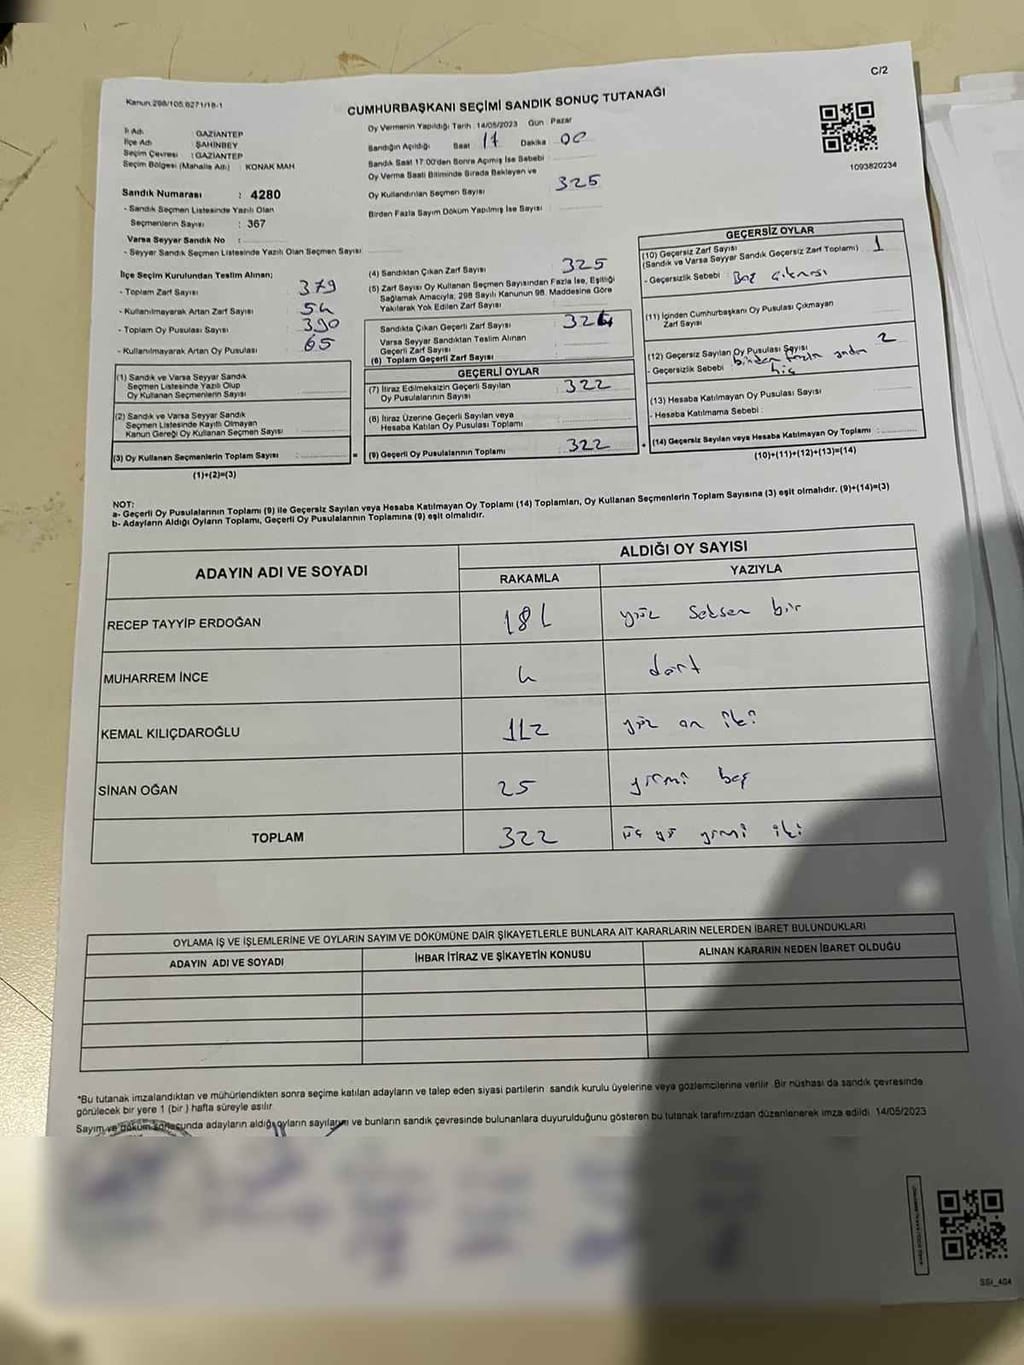 C/2
Kanun:298/105,6271/18-1
CUMHURBAŞKANI SEÇİMİ SANDIK SONUÇ TUTANAĞI
1093820234
İl Adı : GAZİANTEP
İlçe Adı : ŞAHİNBEY
Seçim Çevresi : GAZİANTEP
Seçim Bölgesi (Mahalle Adı) : KONAK MAH
Sandık Numarası : 4280
- Sandık Seçmen Listesinde Yazılı Olan
Seçmenlerin Sayısı : 367
Varsa Seyyar Sandık No :
- Seyyar Sandık Seçmen Listesinde Yazılı Olan Seçmen Sayısı :
Oy Vermenin Yapıldığı Tarih : 14/05/2023 Gün : Pazar
Sandığın Açıldığı Saat 17 Dakika 00
Sandık Saat 17:00'den Sonra Açılmış İse Sebebi :
Oy Verme Saati Bitiminde Sırada Bekleyen ve
Oy Kullandırılan Seçmen Sayısı 325
Birden Fazla Sayım Döküm Yapılmış İse Sayısı :
İlçe Seçim Kurulundan Teslim Alınan;
- Toplam Zarf Sayısı : 379
- Kullanılmayarak Artan Zarf Sayısı : 54
- Toplam Oy Pusulası Sayısı : 390
- Kullanılmayarak Artan Oy Pusulası : 65
(1) Sandık ve Varsa Seyyar Sandık
Seçmen Listesinde Yazılı Olup
Oy Kullanan Seçmenlerin Sayısı :
(2) Sandık ve Varsa Seyyar Sandık
Seçmen Listesinde Kayıtlı Olmayan
Kanun Gereği Oy Kullanan Seçmen Sayısı :
(3) Oy Kullanan Seçmenlerin Toplam Sayısı :
(1)+(2)=(3)
(4) Sandıktan Çıkan Zarf Sayısı : 325
(5) Zarf Sayısı Oy Kullanan Seçmen Sayısından Fazla İse, Eşitliği
Sağlamak Amacıyla; 298 Sayılı Kanunun 98. Maddesine Göre
Yakılarak Yok Edilen Zarf Sayısı :
Sandıkta Çıkan Geçerli Zarf Sayısı : 324
Varsa Seyyar Sandıktan Teslim Alınan
Geçerli Zarf Sayısı :
(6) Toplam Geçerli Zarf Sayısı :
GEÇERLİ OYLAR
(7) İtiraz Edilmeksizin Geçerli Sayılan
Oy Pusulalarının Sayısı : 322
(8) İtiraz Üzerine Geçerli Sayılan veya
Hesaba Katılan Oy Pusulası Toplamı :
(9) Geçerli Oy Pusulalarının Toplamı : 322
GEÇERSİZ OYLAR
(10) Geçersiz Zarf Sayısı
(Sandık ve Varsa Seyyar Sandık Geçersiz Zarf Toplamı) : 1
- Geçersizlik Sebebi : Boş çıkması
(11) İçinden Cumhurbaşkanı Oy Pusulası Çıkmayan
Zarf Sayısı :
(12) Geçersiz Sayılan Oy Pusulası Sayısı : 2
- Geçersizlik Sebebi : birden fazla
(13) Hesaba Katılmayan Oy Pusulası Sayısı :
- Hesaba Katılmama Sebebi :
(14) Geçersiz Sayılan veya Hesaba Katılmayan Oy Toplamı :
(10)+(11)+(12)+(13)=(14)
NOT:
a- Geçerli Oy Pusulalarının Toplamı (9) ile Geçersiz Sayılan veya Hesaba Katılmayan Oy Toplamı (14) Toplamları, Oy Kullanan Seçmenlerin Toplam Sayısına (3) eşit olmalıdır. (9)+(14)=(3)
b- Adayların Aldığı Oyların Toplamı, Geçerli Oy Pusulalarının Toplamına (9) eşit olmalıdır.
ADAYIN ADI VE SOYADI ALDIĞI OY SAYISI
RAKAMLA YAZIYLA
RECEP TAYYİP ERDOĞAN 181 yüz seksen bir
MUHARREM İNCE 4 dört
KEMAL KILIÇDAROĞLU 112 yüz on iki
SİNAN OĞAN 25 yirmi beş
TOPLAM 322 üç yü yirmi iki
OYLAMA İŞ VE İŞLEMLERİNE VE OYLARIN SAYIM VE DÖKÜMÜNE DAİR ŞİKAYETLERLE BUNLARA AİT KARARLARIN NELERDEN İBARET BULUNDUKLARI
ADAYIN ADI VE SOYADI İHBAR İTİRAZ VE ŞİKAYETİN KONUSU ALINAN KARARIN NEDEN İBARET OLDUĞU
*Bu tutanak imzalandıktan ve mühürlendikten sonra seçime katılan adayların ve talep eden siyasi partilerin sandık kurulu üyelerine veya gözlemcilerine verilir. Bir nüshası da sandık çevresinde
görülecek bir yere 1 (bir) hafta süreyle asılır.
Sayım ve döküm sonucunda adayların aldığı oyların sayılarını ve bunların sandık çevresinde bulunanlara duyurulduğunu gösteren bu tutanak tarafımızdan düzenlenerek imza edildi. 14/05/2023
SSİ_404